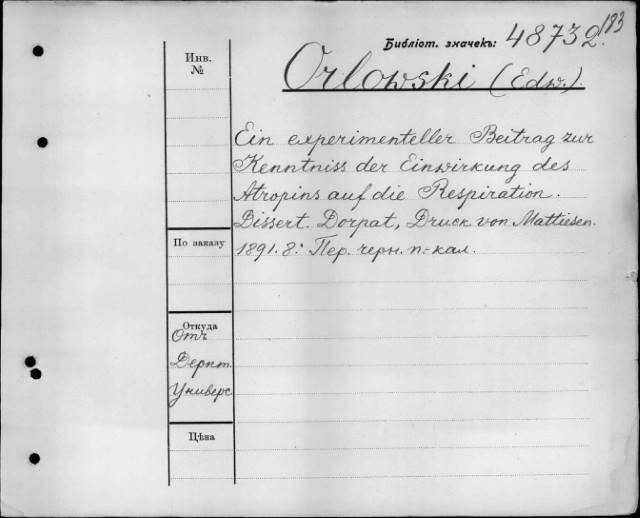 183
Библіот. значекъ: 48732.
Инв.
№
Orlowski (Edw.).
Ein experimenteller Beitrag zur
Kenntniss der Einwirkung des
Atropins auf die Respiration.
Dissert. Dorpat, Druck von Mattiesen.
1891. 8.° Пер. черн. п.-кал.
По заказу
Откуда
Отъ
Дерпт.
Универс
Цѣна